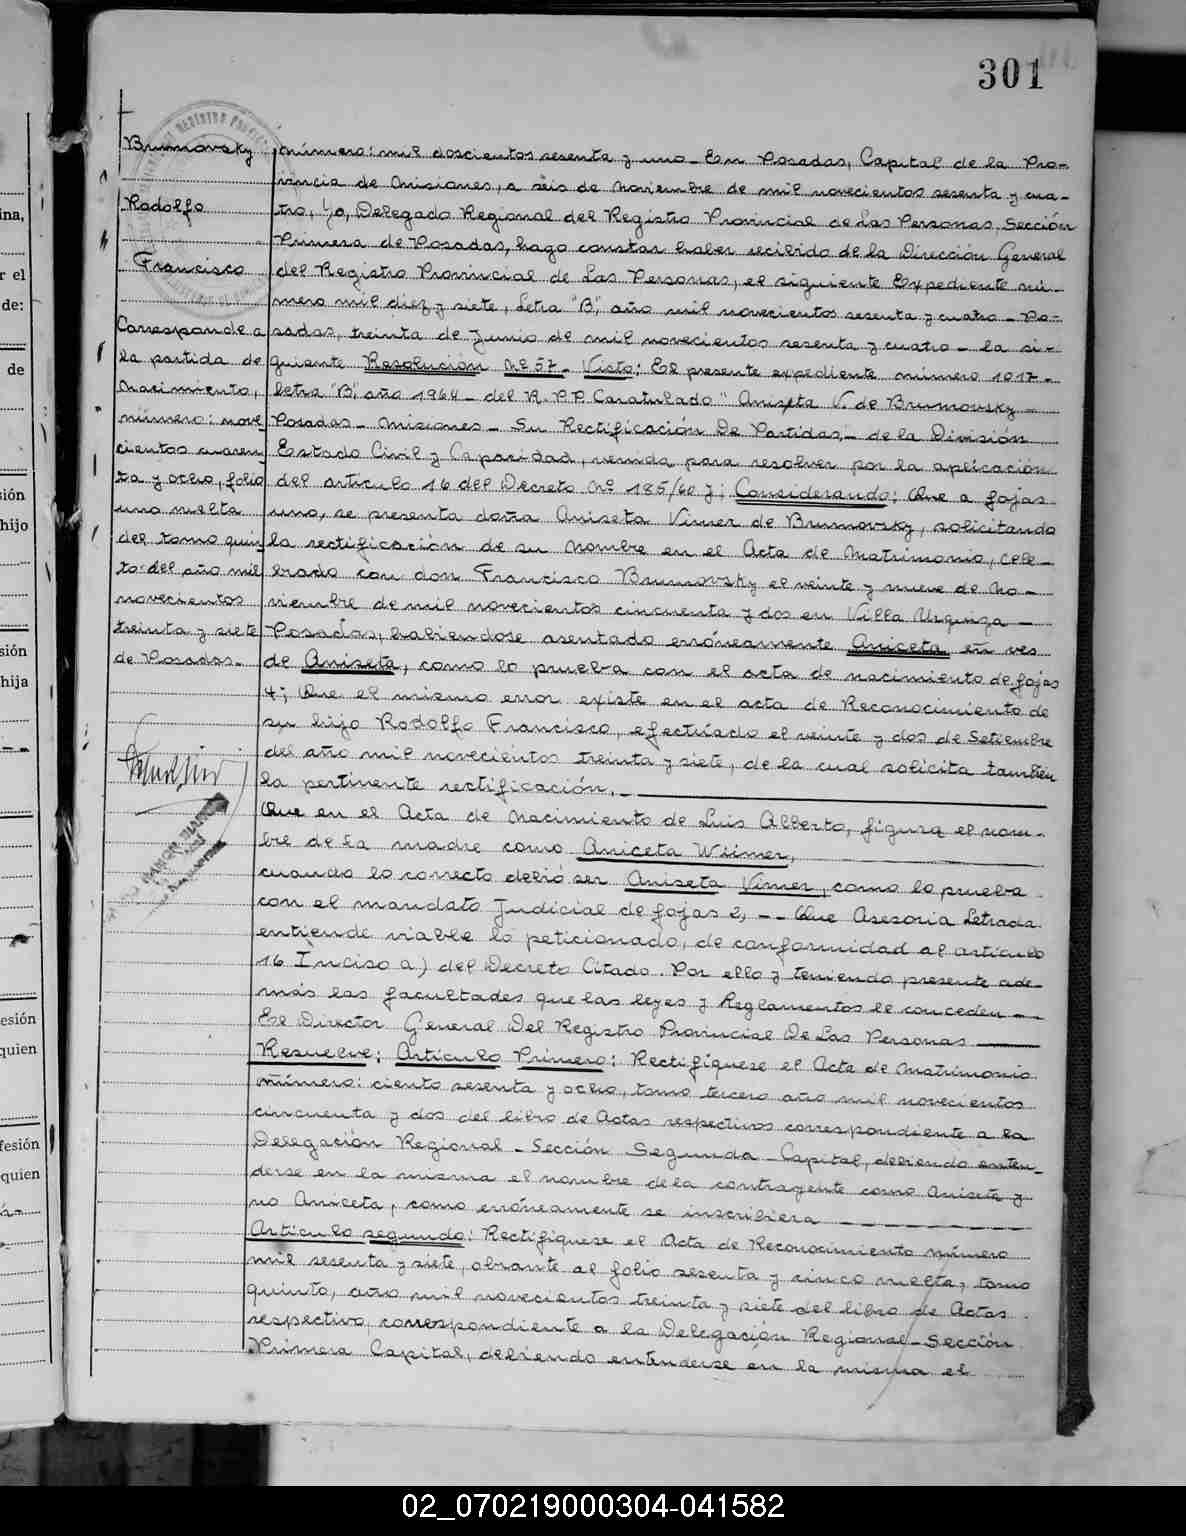 301
Brumovsky
Rodolfo
Francisco
Corresponde a
la partida de
Nacimiento,
número: nove-
cientos cuaren-
ta y ocho, folio
uno vuelta
del tomo quin-
to: del año mil
novecientos
treinta y siete
de Posadas.-
número: mil doscientos sesenta y uno - En Posadas, Capital de la Pro-
vincia de Misiones, a seis de noviembre de mil novecientos sesenta y cua-
tro, Yo, Delegado Regional del Registro Provincial de Las Personas, Sección
Primera de Posadas, hago constar haber recibido de la Dirección General
del Registro Provincial de Las Personas, el siguiente Expediente nú-
mero mil diez y siete, Letra "B", año mil novecientos sesenta y cuatro - Po-
sadas, treinta de Junio de mil novecientos sesenta y cuatro - la si-
guiente Resolución Nº 57 - Visto: El presente expediente número 1017 -
letra "B", año 1964 - del R.P.P. Caratulado "Aniseta V. de Brumovsky -
Posadas - Misiones - Su Rectificación De Partidas, - de la División
Estado Civil y Capacidad, venida para resolver por la aplicación
del artículo 16 del Decreto Nº 185/60 y; Considerando: Que a fojas
uno, se presenta doña Aniseta Vimer de Brumovsky, solicitando
la rectificación de su nombre en el Acta de Matrimonio, cele-
brado con don Francisco Brumovsky el veinte y nueve de No-
viembre de mil novecientos cincuenta y dos en Villa Urquiza -
Posadas, habiendose asentado erróneamente Aniceta en ves
de Aniseta, como lo prueba con el acta de nacimiento de fojas
4; Que el mismo error existe en el acta de Reconocimiento de
su hijo Rodolfo Francisco, efectuado el veinte y dos de Setiembre
del año mil novecientos treinta y siete, de la cual solicita también
la pertinente rectificación. -
Que en el Acta de Nacimiento de Luis Alberto, figura el nom-
bre de la madre como Aniceta Wiimer,
cuando lo correcto debió ser Aniseta Vimer, como lo prueba
con el mandato Judicial de fojas 2, -- Que Asesoria Letrada
entiende viable lo peticionado, de conformidad al artículo
16 Inciso a) del Decreto Citado. Por ello y teniendo presente ade-
más las facultades que las leyes y Reglamentos le conceden --
El Director General Del Registro Provincial De Las Personas
Resuelve: Artículo Primero: Rectifíquese el Acta de Matrimonio
número: ciento sesenta y ocho, tomo tercero año mil novecientos
cincuenta y dos del libro de Actas respectivos correspondiente a la
Delegación Regional - Sección Segunda - Capital, debiendo enten-
derse en la misma el nombre de la contrayente como Aniseta y
no Aniceta, como erróneamente se inscribiera
Artículo segundo: Rectifíquese el Acta de Reconocimiento número
mil sesenta y siete, obrante al folio sesenta y cinco vuelta, tomo
quinto, año mil novecientos treinta y siete del libro de Actas
respectivo, correspondiente a la Delegación Regional - Sección
Primera Capital, debiendo entenderse en la misma el
ina,
r el
de:
de
sión
hijo
sión
hija
esión
quien
fesión
quien
02_070219000304-041582